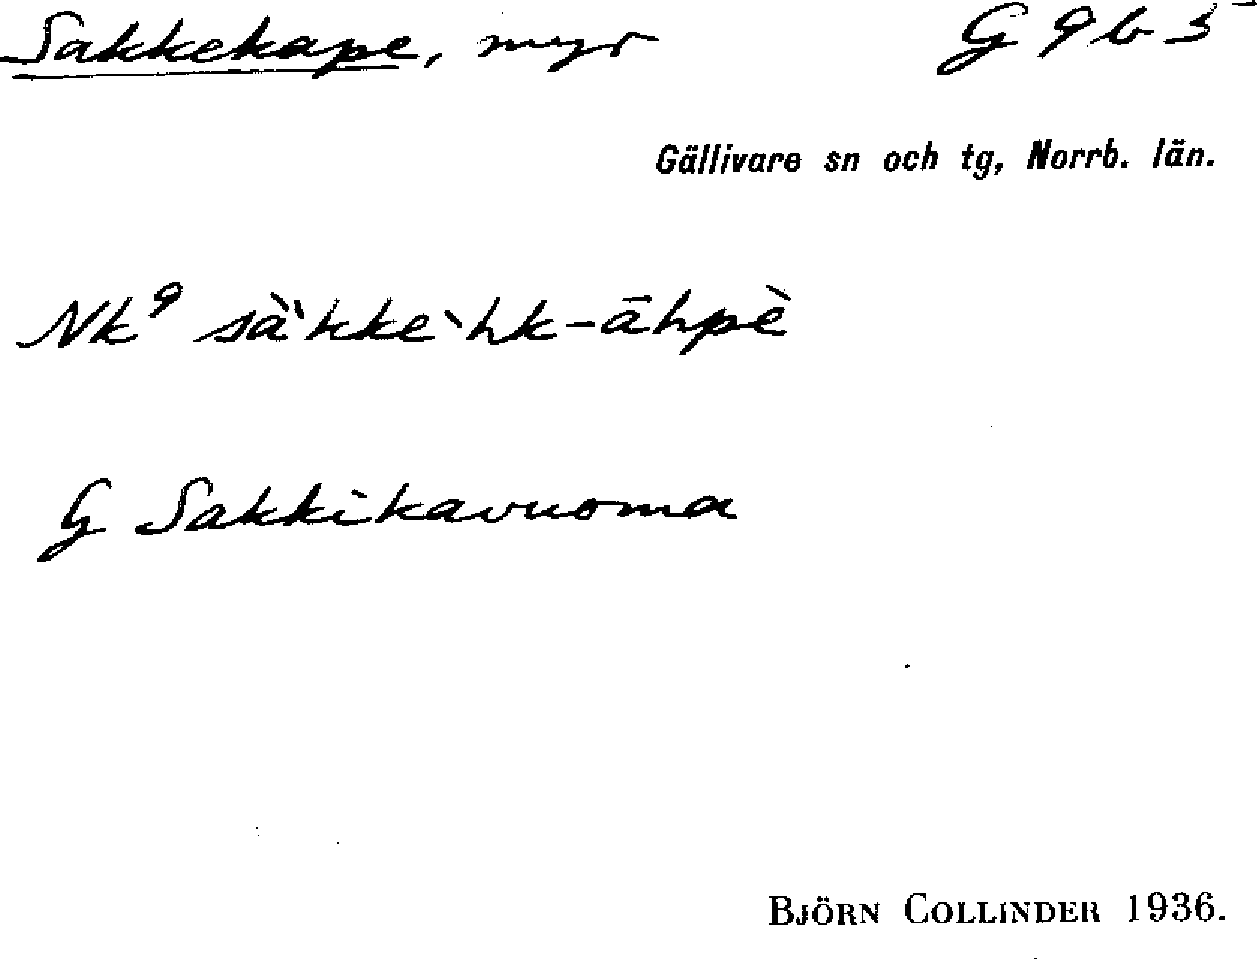 Sakkekape, myr G 9 b 5
Gällivare sn och tg, Norrb. län.
Nk⁹ sàˋkkeˋhk-āhpè
G Sakkikavuoma
BJÖRN COLLINDER 1936.